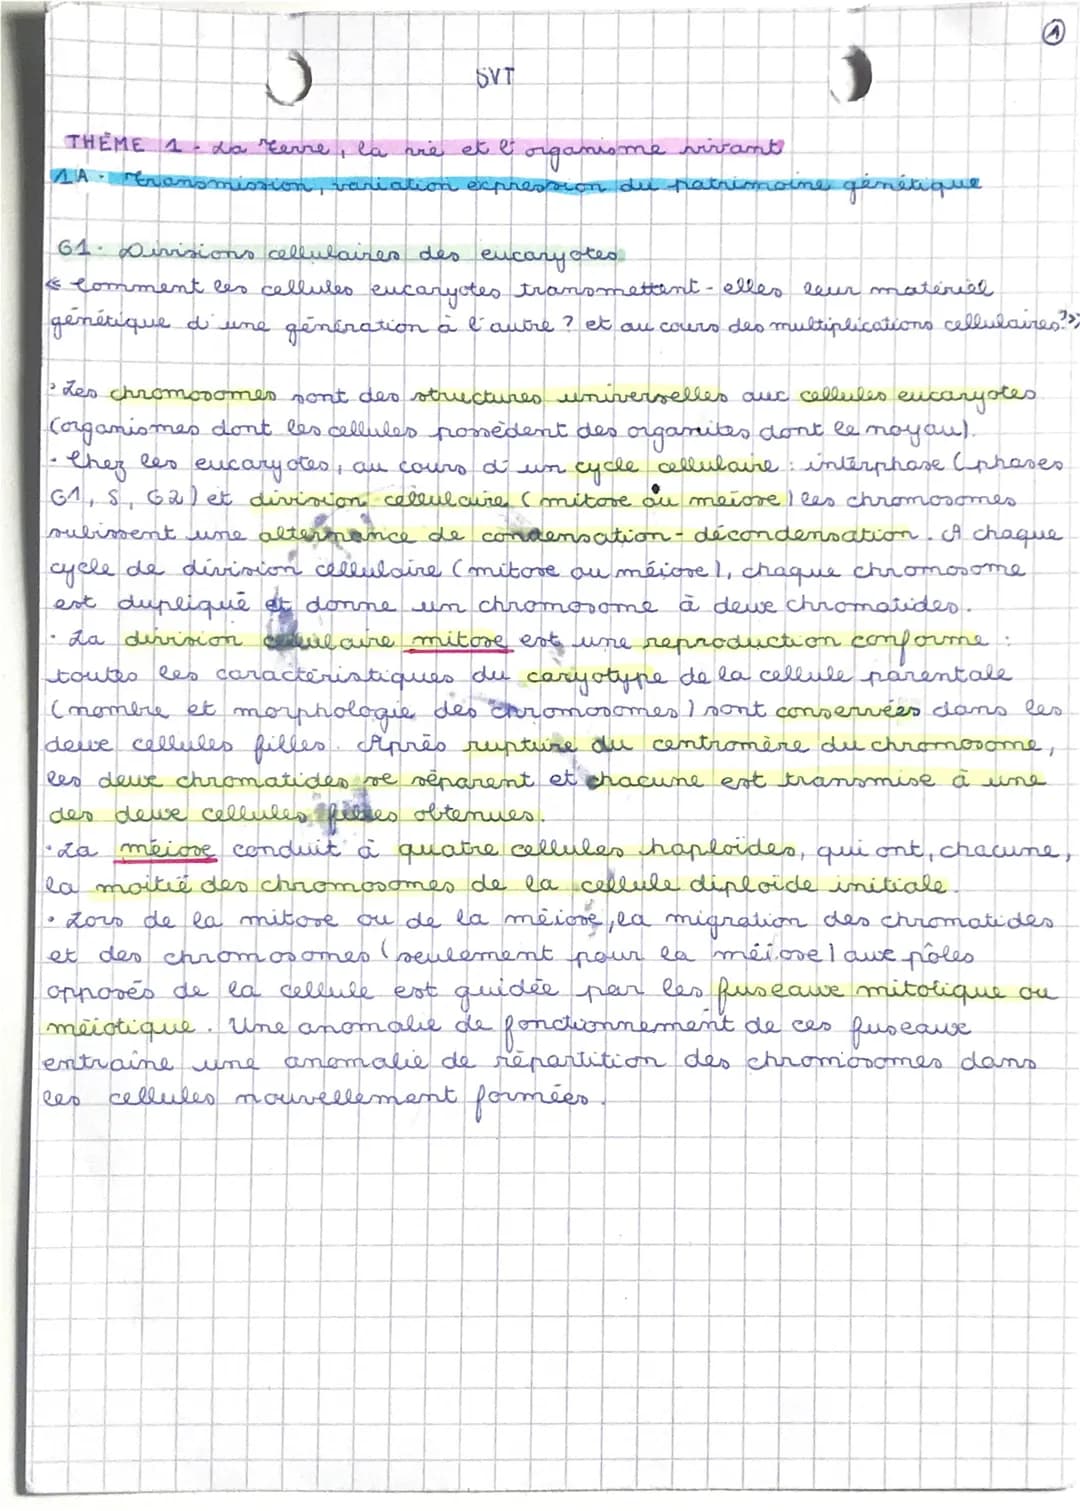 1
SVT
THÈME 1 - La Terre, la vie et l'organisme vivant
1A - Transmission, variation expression du patrimoine génétique
G1 - Divisions cellulaires des eucaryotes
« Comment les cellules eucaryotes transmettent-elles leur matériel
génétique d'une génération à l'autre ? et au cours des multiplications cellulaires ? »
• Les chromosomes sont des structures universelles aux cellules eucaryotes
(organismes dont les cellules possèdent des organites dont le noyau).
• Chez les eucaryotes, au cours d'un cycle cellulaire : interphase (phases
G1, S, G2) et division cellulaire (mitose ou meiose) les chromosomes
subissent une alternance de condensation - décondensation. A chaque
cycle de division cellulaire (mitose ou méiose), chaque chromosome
est dupliqué et donne un chromosome à deux chromatides.
• La division cellulaire mitose est une reproduction conforme :
toutes les caractéristiques du caryotype de la cellule parentale
(nombre et morphologie des chromosomes) sont conservées dans les
deux cellules filles. Après rupture du centromère du chromosome,
les deux chromatides se séparent et chacune est transmise à une
des deux cellules filles obtenues.
• La méiose conduit à quatre cellules haploïdes, qui ont, chacune,
la moitié des chromosomes de la cellule diploïde initiale.
• Lors de la mitose ou de la méiose, la migration des chromatides
et des chromosomes (seulement pour la méiose) aux pôles
opposés de la cellule est guidée par les fuseaux mitotique ou
méiotique. Une anomalie de fonctionnement de ces fuseaux
entraine une anomalie de répartition des chromosomes dans
les cellules nouvellement formées.